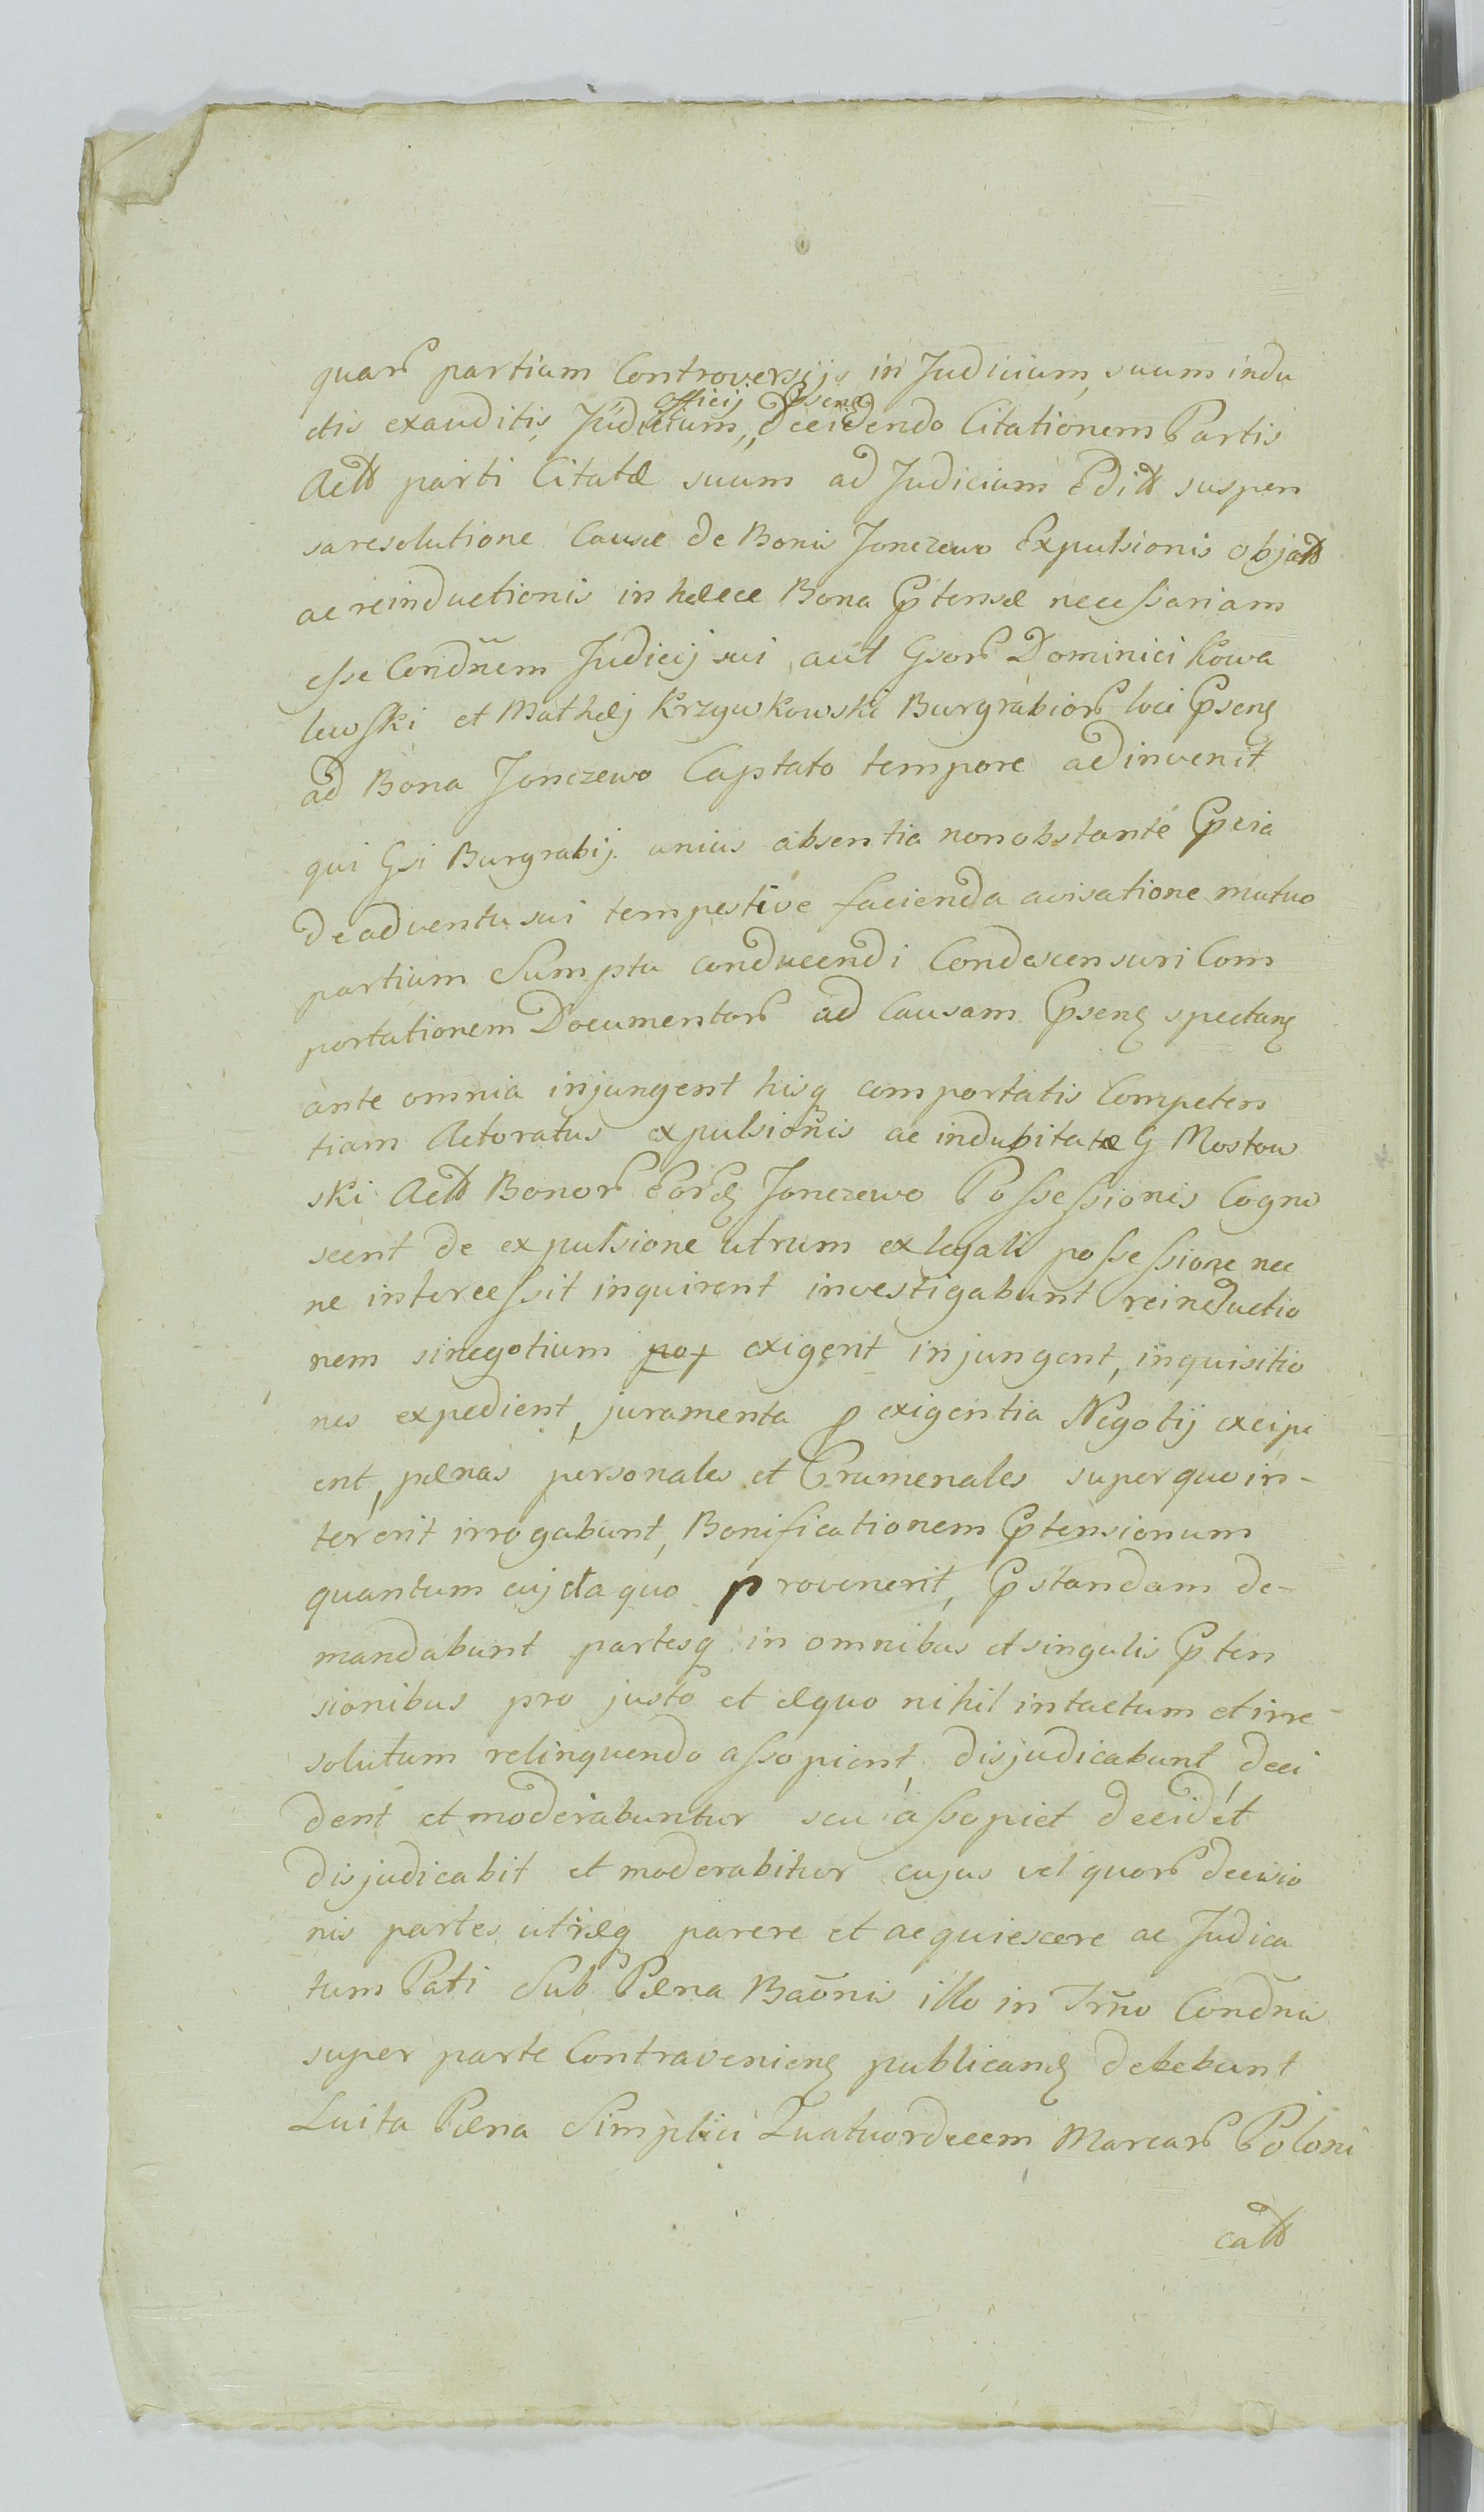 quar partium Controversijs in Judicium suum indu
officij Pssens
ctis exauditis, Judicium, decidendo Citationem Partis
Act parti Citatæ suum ad Judicium Edit suspen
sa resolutione Causæ de Bonis Jonczewo Expulsionis objat
ac reinductionis in hæcce Bona Ptensæ necessariam
esse Condnem Judicij sui aut Gsor Dominici Kowa
lewski et Mathæj Krzywkowski Burgrabior loci Psens
ad Bona Jonczewo Captato tempore adinvenit
qui Gsi Burgrabij unius absentia nonobstante Pvia
de adventu sui tempestive facienda avisatione mutuo
partium Sumptu conducendi Condescensuri Com
portationem Documentor ad Causam Psens spectans
ante omnia injungent hisq comportatis Competen
tiam Actoratus expulsionis ac indubitatæ G Mostow
ski Act Bonor Eord Jonczewo Possessionis Cogno
scent de expulsione utrum ex legali possessione nec
ne intercessit inquirent investigabunt reinductio
nem si negotium exigerit injungent, inquisitio
nes expedient, juramenta p exigentia Negotij excipi
ent, pænas personales et Crumenales super quo in-
tererit irrogabunt, Bonificationem Ptensionum
quantum cuj et a quo provenerit, Pstandam de-
mandabunt partesq in omnibus et singulis Pten
sionibus pro justo et æquo nihil intactum et irre-
solutum relinquendo assopient, disjudicabunt deci
dent et moderabuntur seu assopiet decidet
disjudicabit et moderabitur cujus vel quor decisio
nis partes utræq parere et acquiescere ac Judica
tum Pati Sub Pæna Baōnis illo in Trno Condnis
super parte Contraveniens publicand debebunt
Luita Pæna Simplici Quatuordecem Marcar Poloni
cat